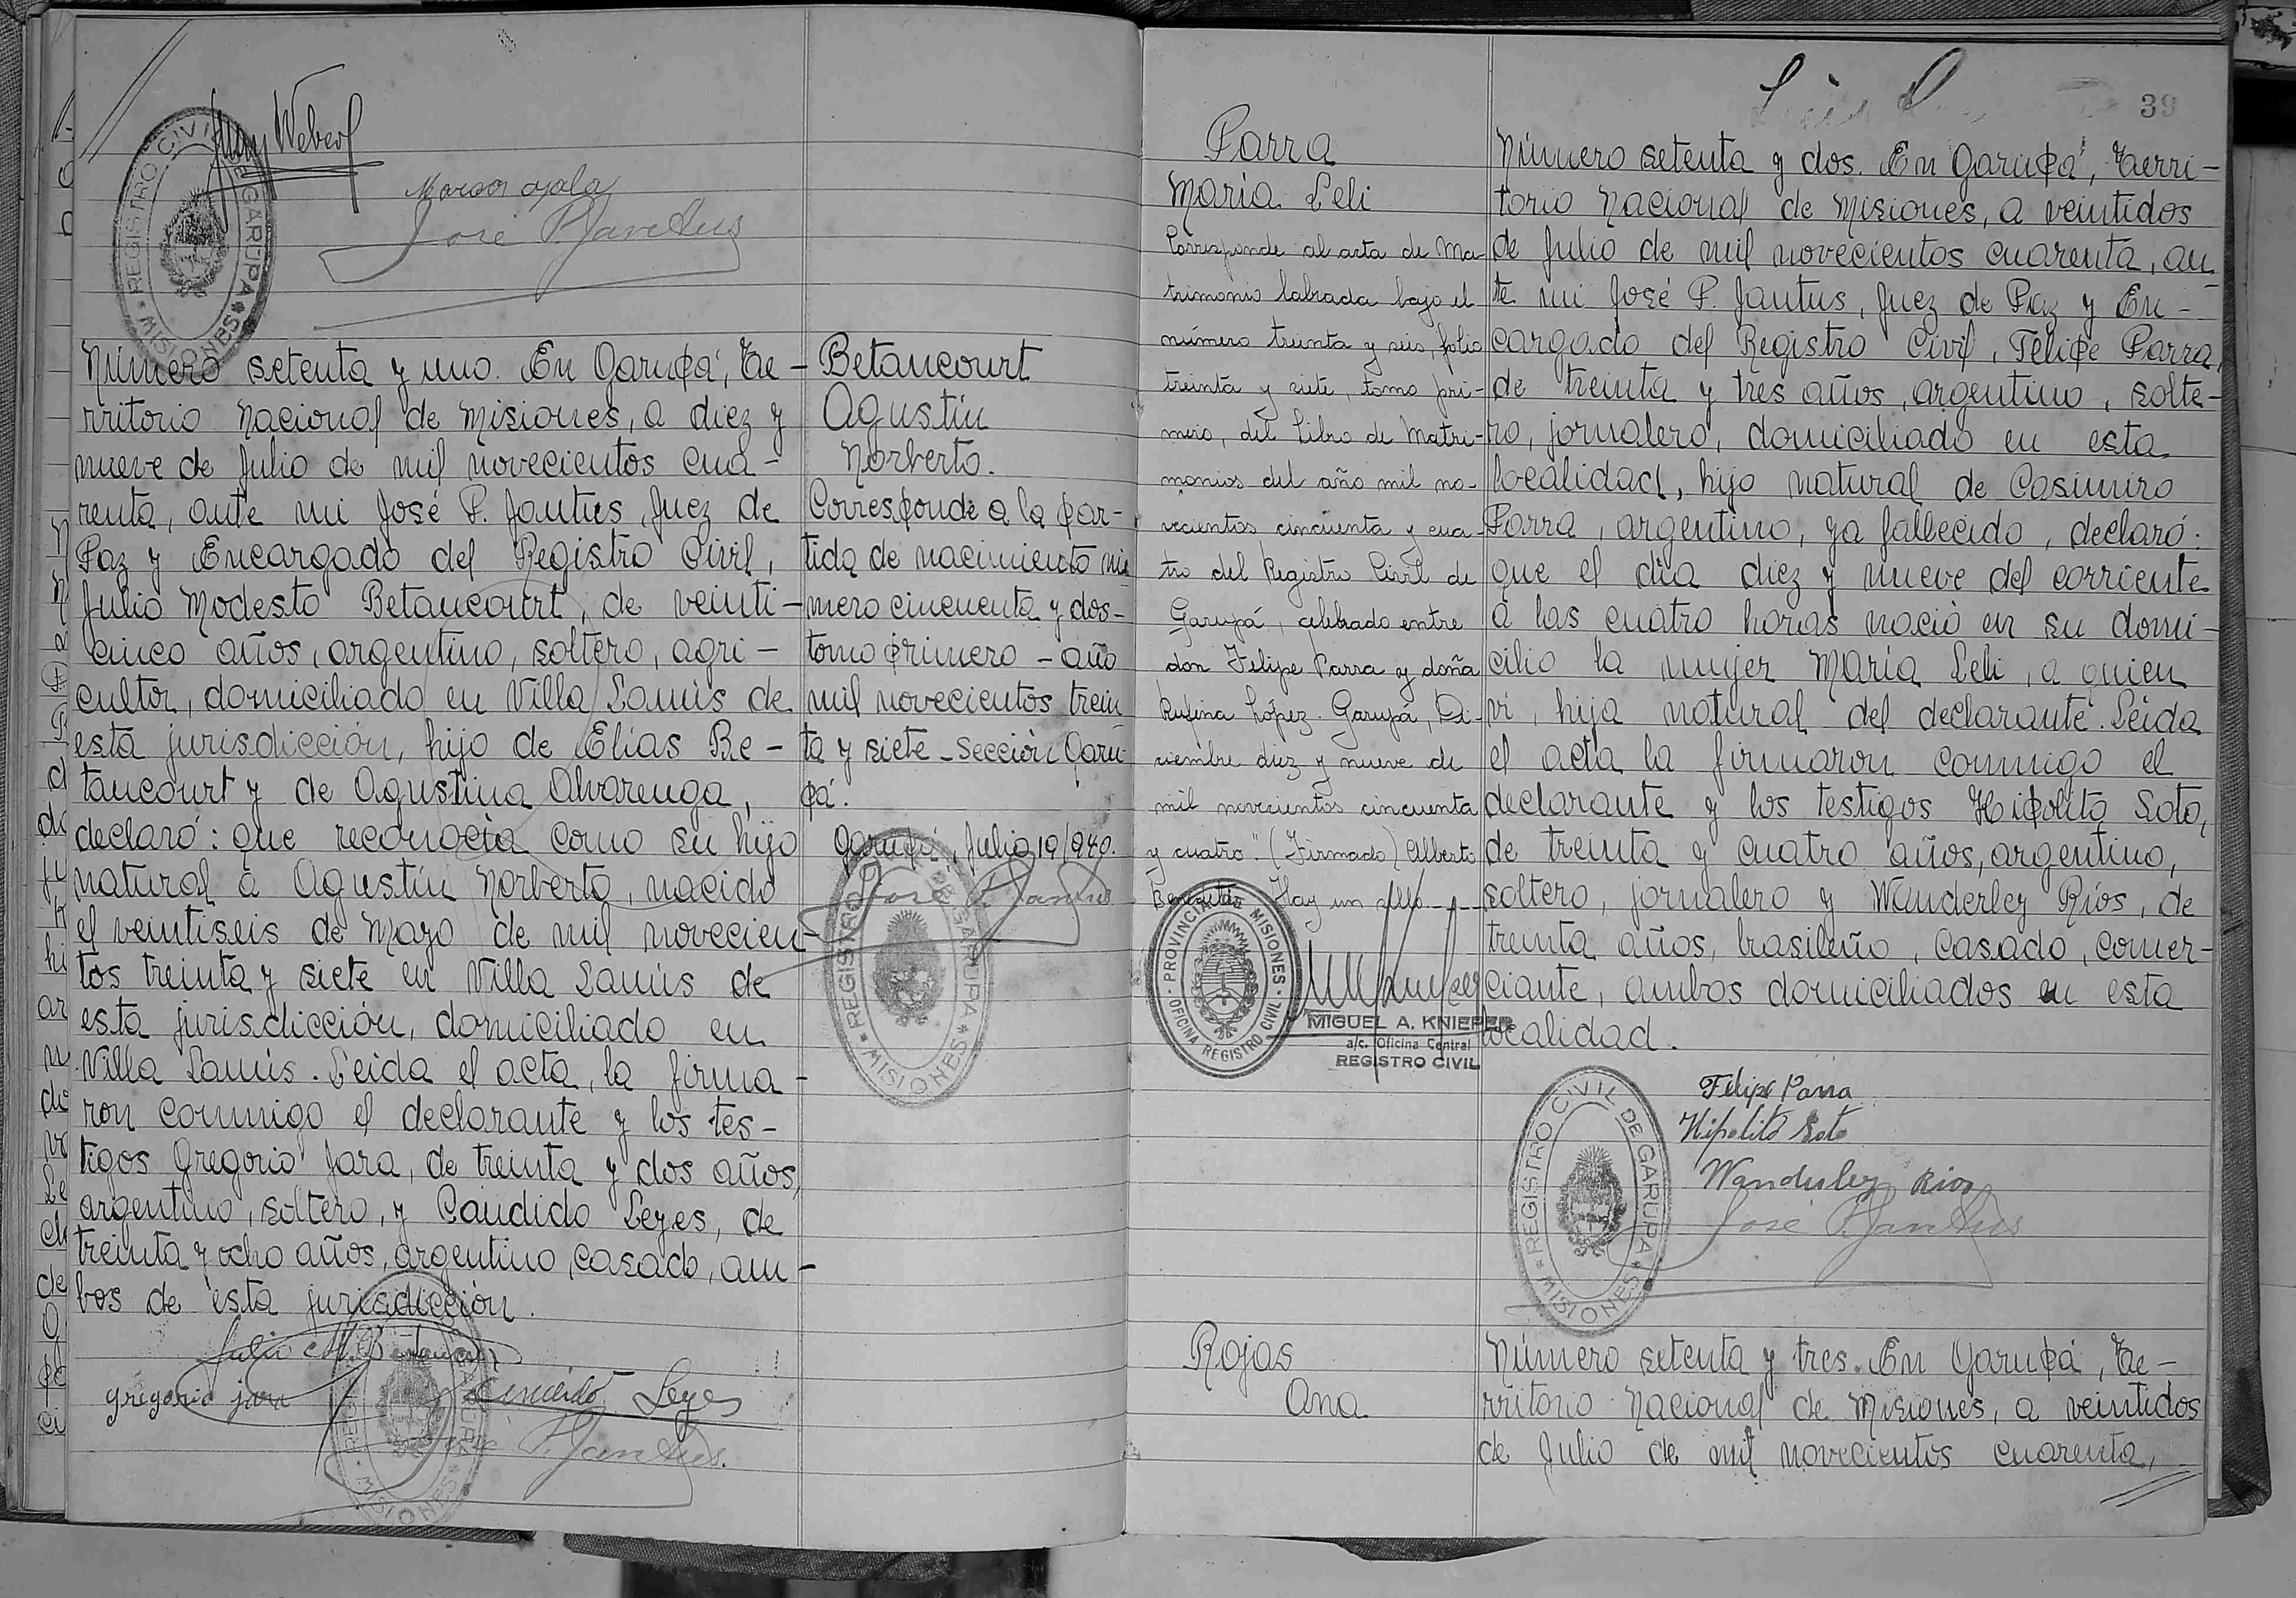 Juan Weber
Marcos Ayala
José P. Jantus
REGISTRO CIVIL DE GARUPA
MISIONES
Número setenta y uno. En Garupá, Te-
rritorio Nacional de Misiones, a diez y
nueve de Julio de mil novecientos cua-
renta, ante mi José P. Jantus, Juez de
Paz y Encargado del Registro Civil,
Julio Modesto Betancourt, de veinti-
cinco años, argentino, soltero, agri-
cultor, domiciliado en Villa Lanús de
esta jurisdicción, hijo de Elías Be-
tancourt y de Agustina Alvarenga,
declaró: que reconocía como su hijo
natural a Agustín Norberto, nacido
el veintiseis de Mayo de mil novecien-
tos treinta y siete en Villa Lanús de
esta jurisdicción, domiciliado en
Villa Lanús. Leida el acta, la firma-
ron conmigo el declarante y los tes-
tigos Gregorio Jara, de treinta y dos años,
argentino, soltero, y Candido Leyes, de
treinta y ocho años, argentino, casado, am-
bos de esta jurisdicción.
Julio M. Betancourt
gregorio jara
Candido Leyes
José P. Jantus.
Betancourt
Agustín
Norberto.
Corresponde a la par-
tida de nacimiento nú
mero cincuenta y dos-
tomo primero - año
mil novecientos trein
ta y siete - Sección Garu-
pá.
Garupá, Julio 19/940.
José P. Jantus
REGISTRO CIVIL DE GARUPA
MISIONES
39
Parra
María Leli
Corresponde al acta de Ma-
trimonio labrada bajo el
número treinta y seis, folio
treinta y siete, tomo pri-
mero, del Libro de Matri-
monios del año mil no-
vecientos cincuenta y cua-
tro del Registro Civil de
Garupá, celebrado entre
don Felipe Parra y doña
Rufina López. Garupá, Di-
ciembre diez y nueve de
mil novecientos cincuenta
y cuatro." (Firmado) Alberto
Hay un sello.
PROVINCIA MISIONES
OFICINA REGISTRO CIVIL
MIGUEL A. KNIEPER
a/c. Oficina Central
REGISTRO CIVIL
Número setenta y dos. En Garupá, Terri-
torio Nacional de Misiones, a veintidos
de Julio de mil novecientos cuarenta, an
te mi José P. Jantus, Juez de Paz y En-
cargado del Registro Civil, Felipe Parra,
de treinta y tres años, argentino, solte-
ro, jornalero, domiciliado en esta
localidad, hijo natural de Casimiro
Parra, argentino, ya fallecido, declaró:
que el día diez y nueve del corriente
a las cuatro horas nació en su domi-
cilio la mujer María Leli, a quien
vi, hija natural del declarante. Leida
el acta la firmaron conmigo el
declarante y los testigos Hipólito Soto,
de treinta y cuatro años, argentino,
soltero, jornalero y Wanderley Ríos, de
treinta años, brasileño, casado, comer-
ciante, ambos domiciliados en esta
localidad.
Felipe Parra
Hipolito Soto
Wanderley Rios
José P. Jantus
REGISTRO CIVIL DE GARUPA
MISIONES
Rojas
Ana
Número setenta y tres. En Garupá, Te-
rritorio Nacional de Misiones, a veintidos
de Julio de mil novecientos cuarenta,